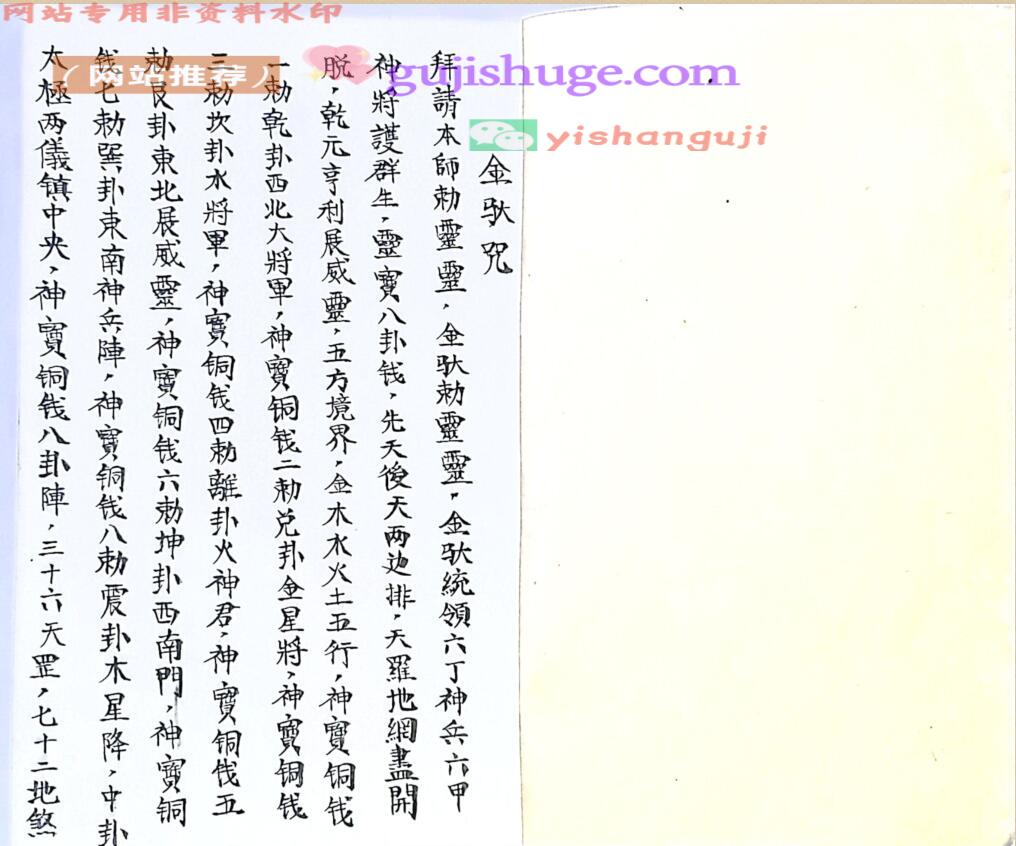 网站专用非资料水印
(网站推荐)
gujishuge.com
yishanguji
金馱咒
拜請本師勅靈靈，金馱勅靈靈，金馱統領六丁神兵六甲
神將護群生，靈寶八卦钱，先天後天两边排，天羅地網盡開
脱，乾元亨利展威靈，五方境界，金木水火土五行，神寶铜钱
一勅乾卦西北大將軍，神寶铜钱二勅兑卦金星將，神寶铜钱
三勅坎卦水將軍，神寶铜钱四勅離卦火神君，神寶铜钱五
勅艮卦東北展威靈，神寶铜钱六勅坤卦西南門，神寶铜
钱七勅巽卦東南神兵陣，神寶铜钱八勅震卦木星降，中卦
太極两儀镇中央，神寶铜钱八卦陣，三十六天罡，七十二地煞